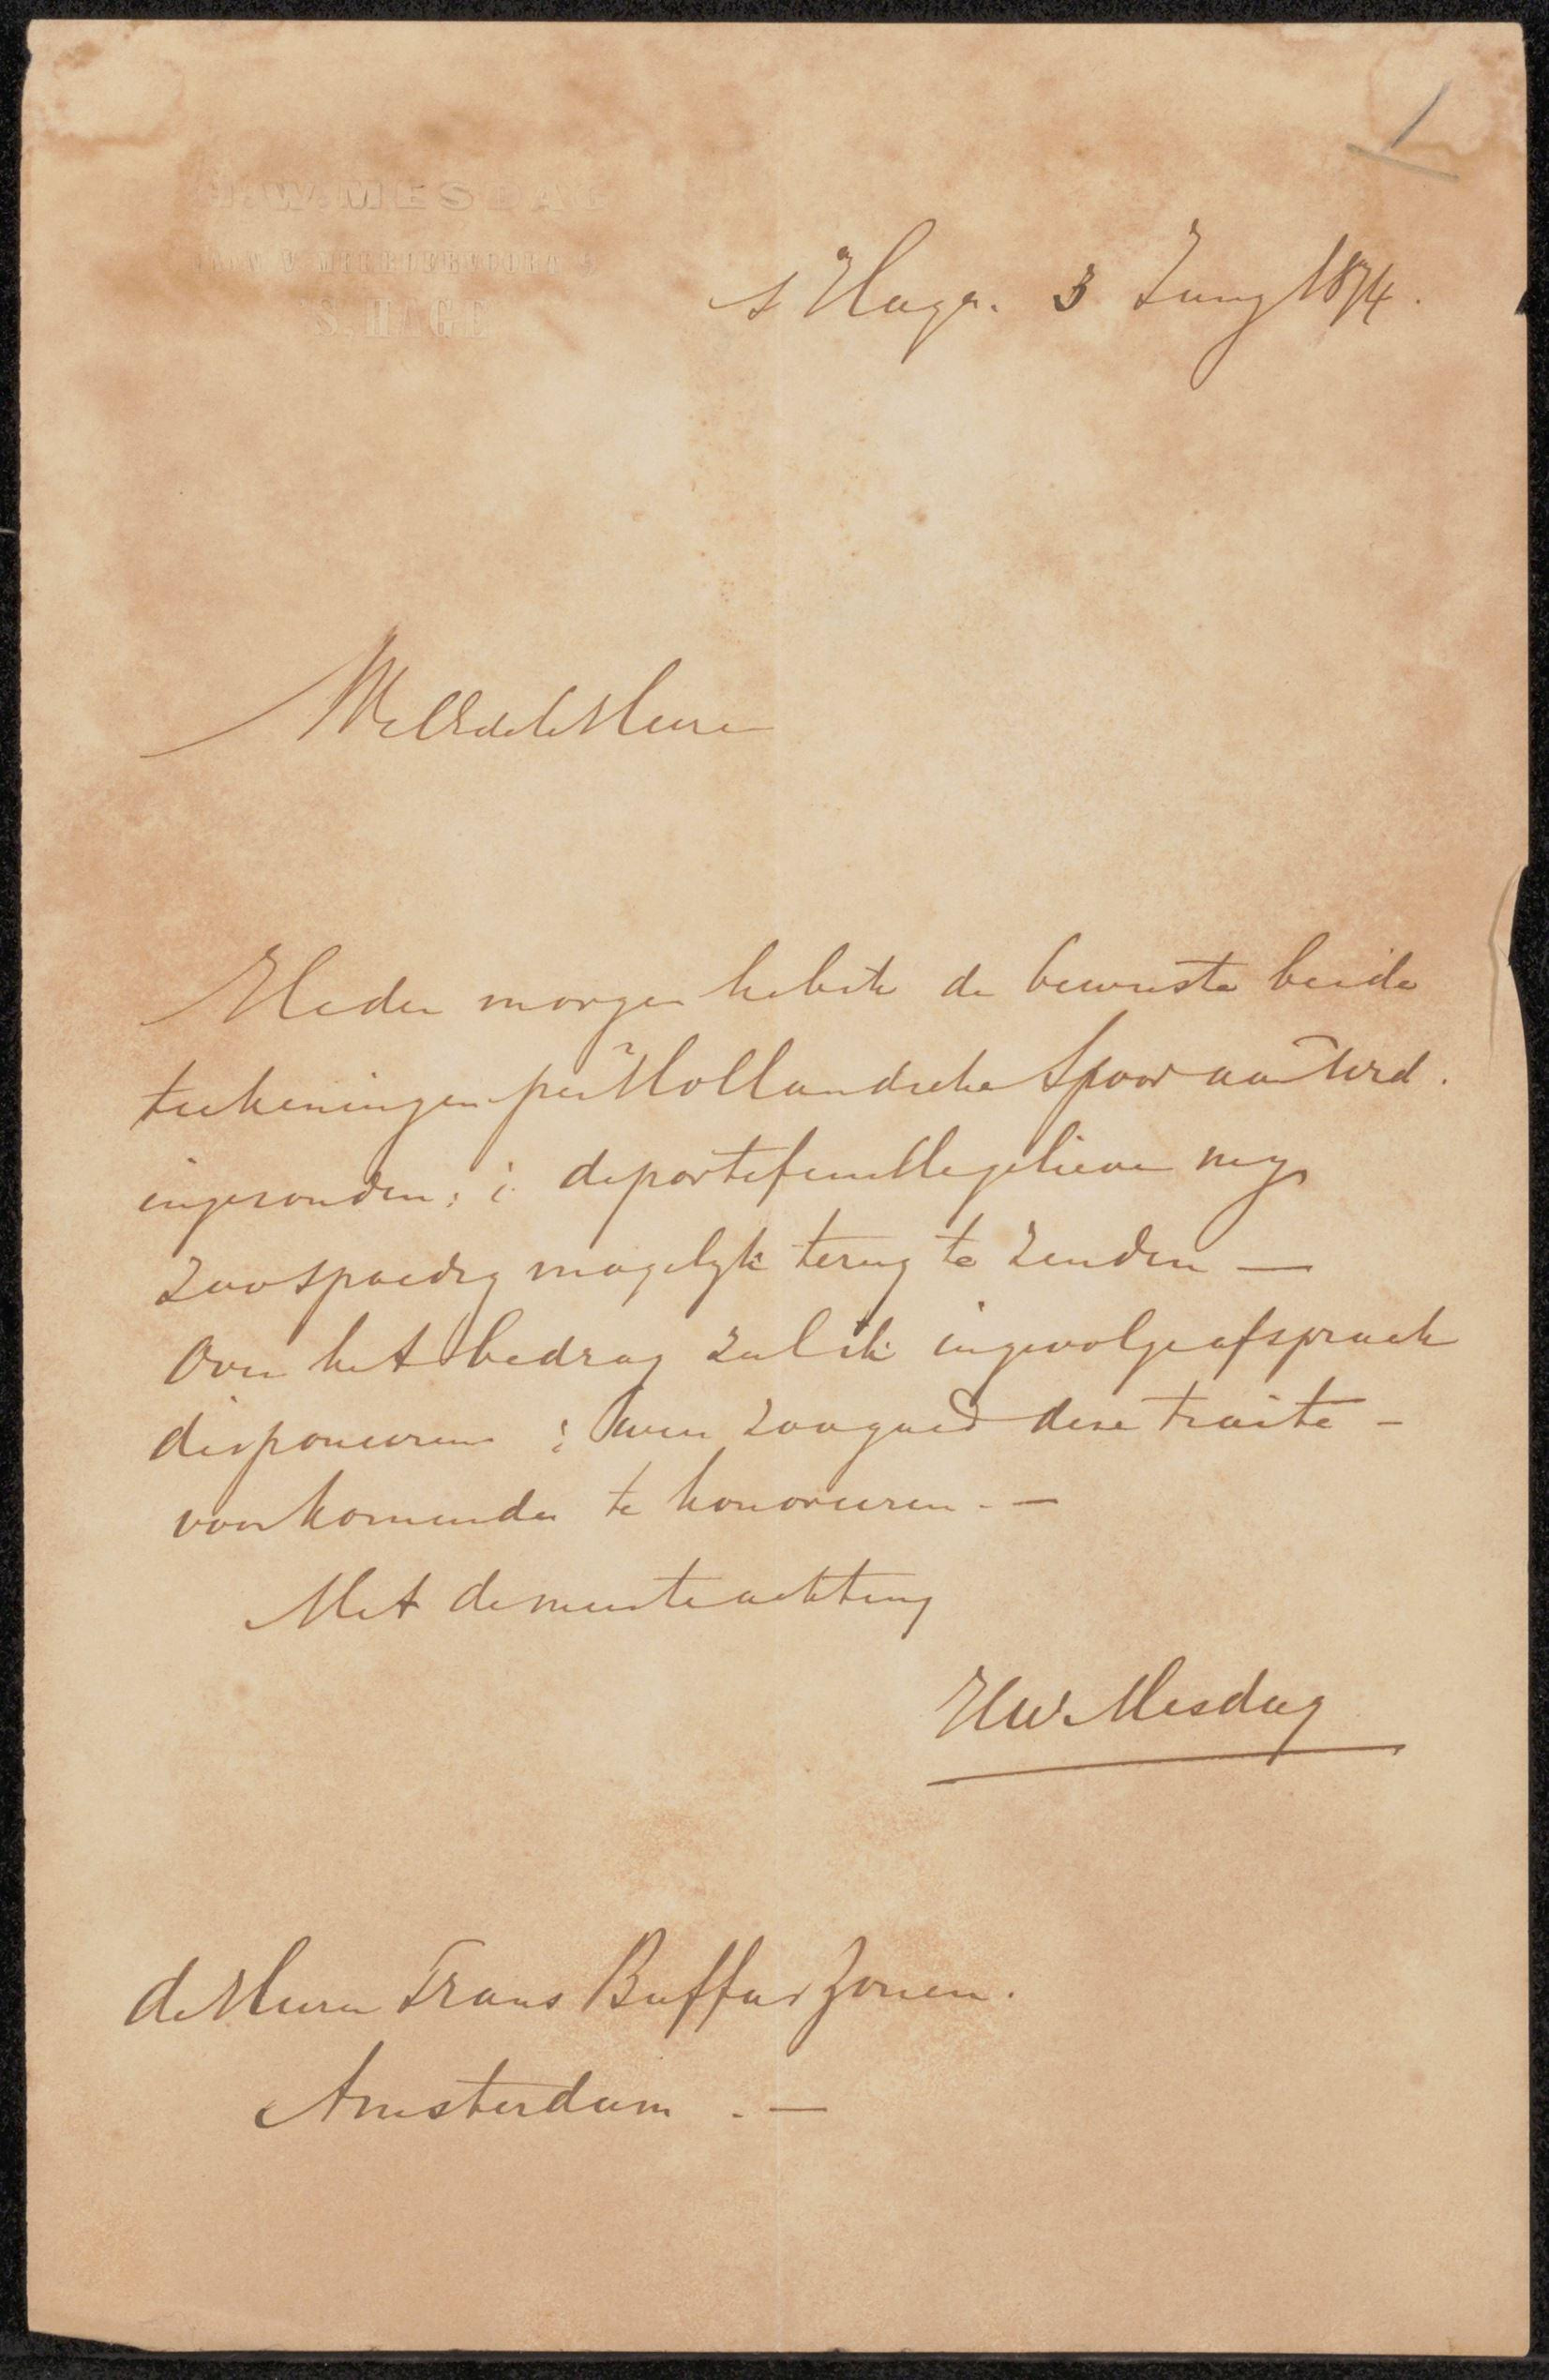 1
H.W. MESDAG
LAAN V. MEERDERVOORT 9
'S HAGE
s Hage. 3 Juny 1874.
WelEdele Heeren
Heden morgen heb ik de bewuste beide
teekeningen per Hollandsche Spoor aan UEd.
ingezonden: de portefeuille gelieve my
zoo spoedig mogelyk terug te zenden —
Over het bedrag zal ik ingevolge afspraak
disponeeren; zoo goed deze traite -
voorkomende te honoreeren. —
Met de meeste achting
HW. Mesdag
de Heeren Frans Buffa & Zonen.
Amsterdam . —